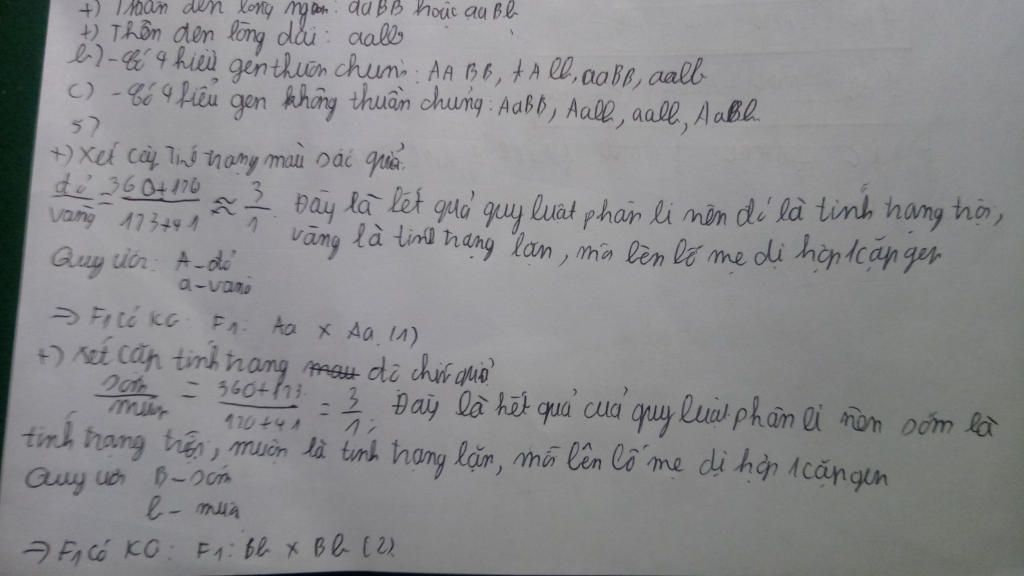 +) Thân đen lông ngắn: aaBB hoặc aaBb
+) Thân đen lông dài: aabb
b) - Số 4 kiểu gen thuần chủng: AABB, AAbb, aaBB, aabb
c) - Số 4 kiểu gen không thuần chủng: AaBB, Aabb, aabb, AaBb
5)
+) Xét cặp tính trạng màu sắc quả.
đỏ/vàng = 360+120/123+41 ≈ 3/1. Đây là kết quả quy luật phân li nên đỏ là tính trạng trội,
vàng là tính trạng lặn, mà bố mẹ dị hợp 1 cặp gen
Quy ước: A - đỏ
a - vàng
⇒ F1 có KG: F1: Aa × Aa (1)
+) Xét cặp tính trạng độ chín quả
sớm/muộn = 360+123/120+41 = 3/1. Đây là kết quả của quy luật phân li nên sớm là
tính trạng trội, muộn là tính trạng lặn, mà bố mẹ dị hợp 1 cặp gen
Quy ước B - sớm
b - muộn
⇒ F1 có KG: F1: Bb × Bb (2)